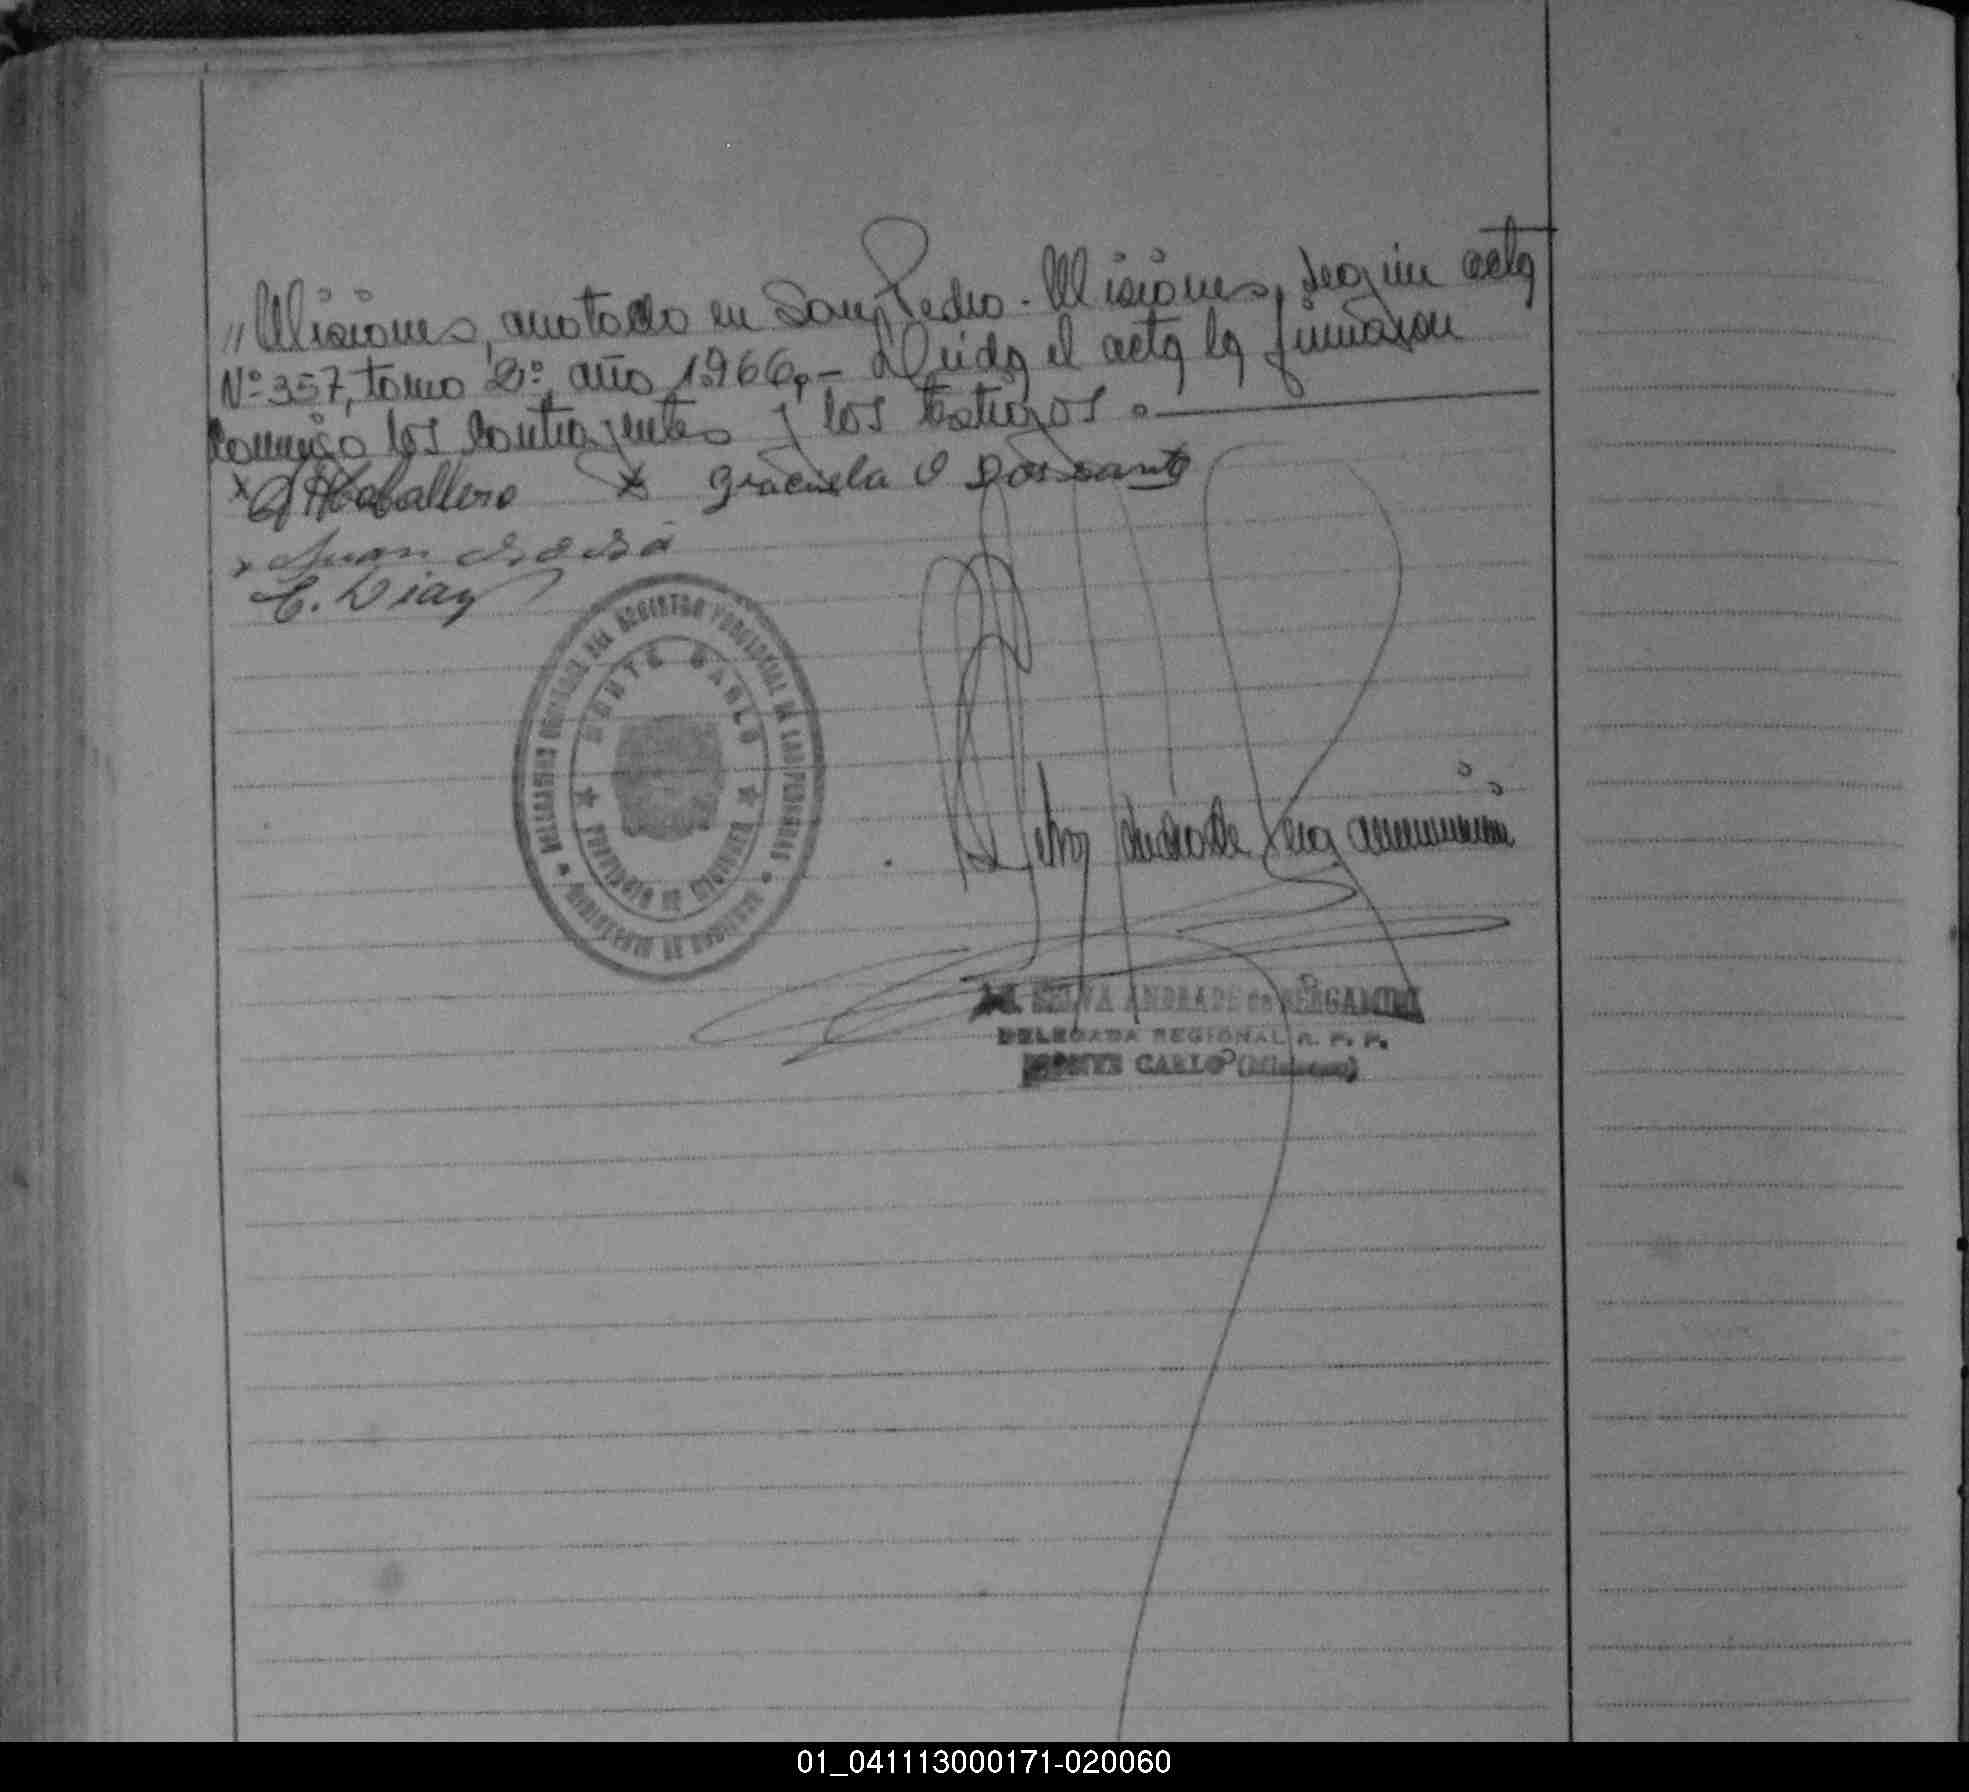 " Misiones, anotado en San Pedro - Misiones, según acta
Nº 357, tomo 2º, año 1966,- Leida el acta la firmaron
conmigo los contrayentes y los testigos.
x Caballero x Graciela O Dos Santo
x Juan
C. Diaz
DELEGACIÓN DEL REGISTRO PROVINCIAL DE LAS PERSONAS
MONTE CARLO
PROVINCIA DE MISIONES
MINISTERIO DE GOBIERNO
Selva Andrade de
SELVA ANDRADE de BERGAMINI
DELEGADA REGIONAL R. P. P.
MONTE CARLO (Misiones)
01_041113000171-020060